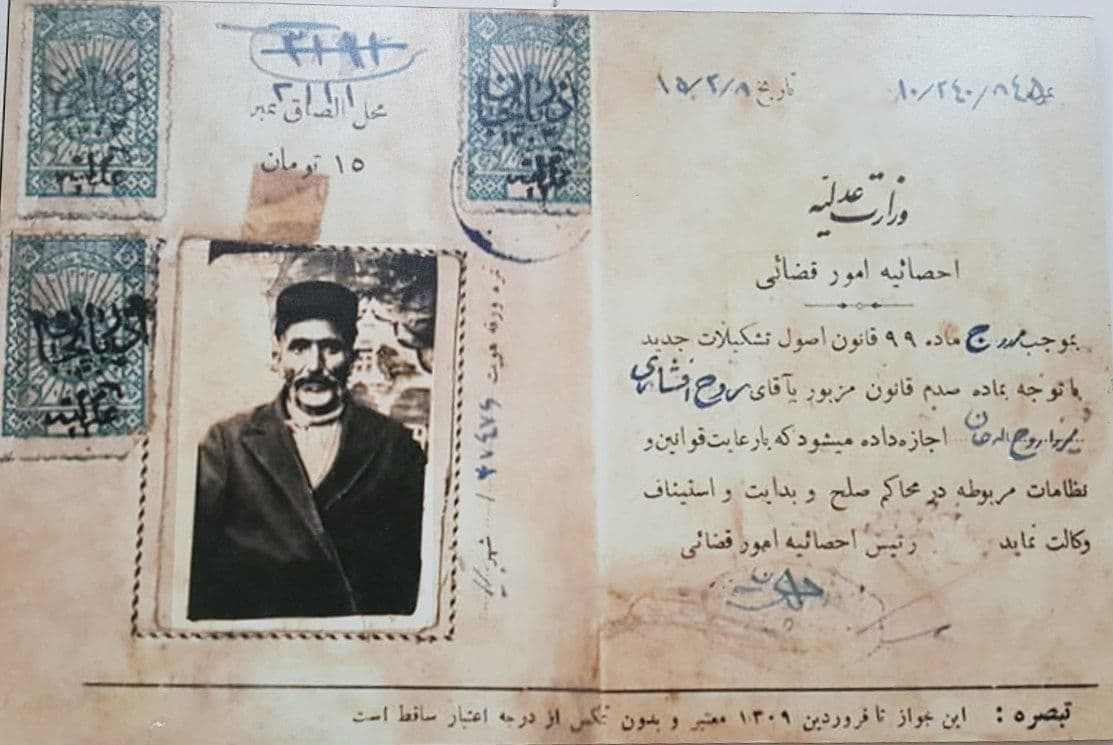 ۳۱۹۲
۲۱۱۱
محل الصاق تمبر
۱۵ تومان
نمره ورقه هویت ۴۷۴۷۶
نمره ۱۰/۲۴۰/۸۴۵
تاریخ ۱۵/۲/۸
وزارت عدلیه
احصائیه امور قضائی
بموجب ماده ۹۹ قانون اصول تشکیلات جدید
با توجه بماده صدم قانون مزبور بآقای روح افشاری
میرزا روح اله خان اجازه داده میشود که بارعایت قوانین و
نظامات مربوطه در محاکم صلح و بدایت و استیناف
وکالت نماید رئیس احصائیه امور قضائی
تبصره : این جواز تا فروردین ۱۳۰۹ معتبر و بدون عکس از درجه اعتبار ساقط است